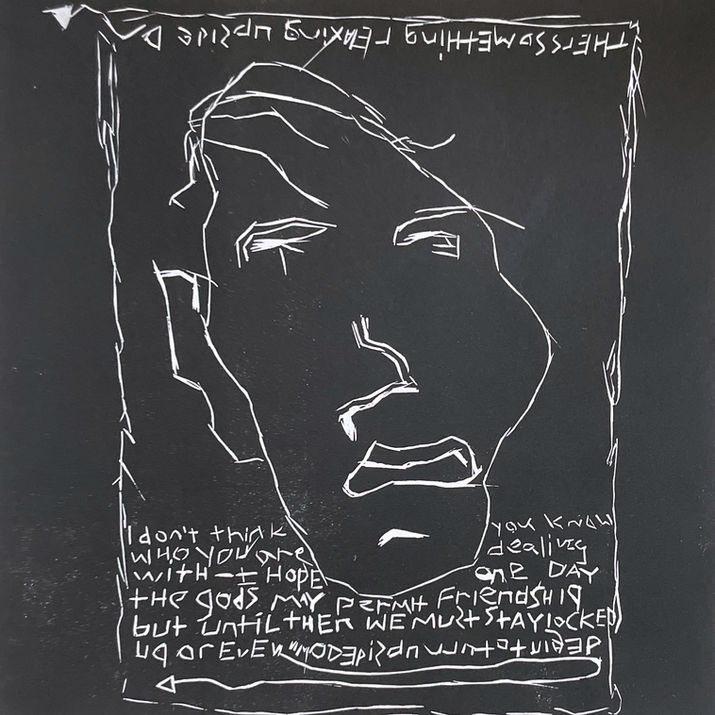 THErSSOMETHING rELAXING UPSIDE D
I don't think you know
WHO YOU are dealing
WITH - I HOPE one DAY
THE gods MY PErMit FriendSHIP
but until THEN WE MUST STAY LOCKED
up or EvEN